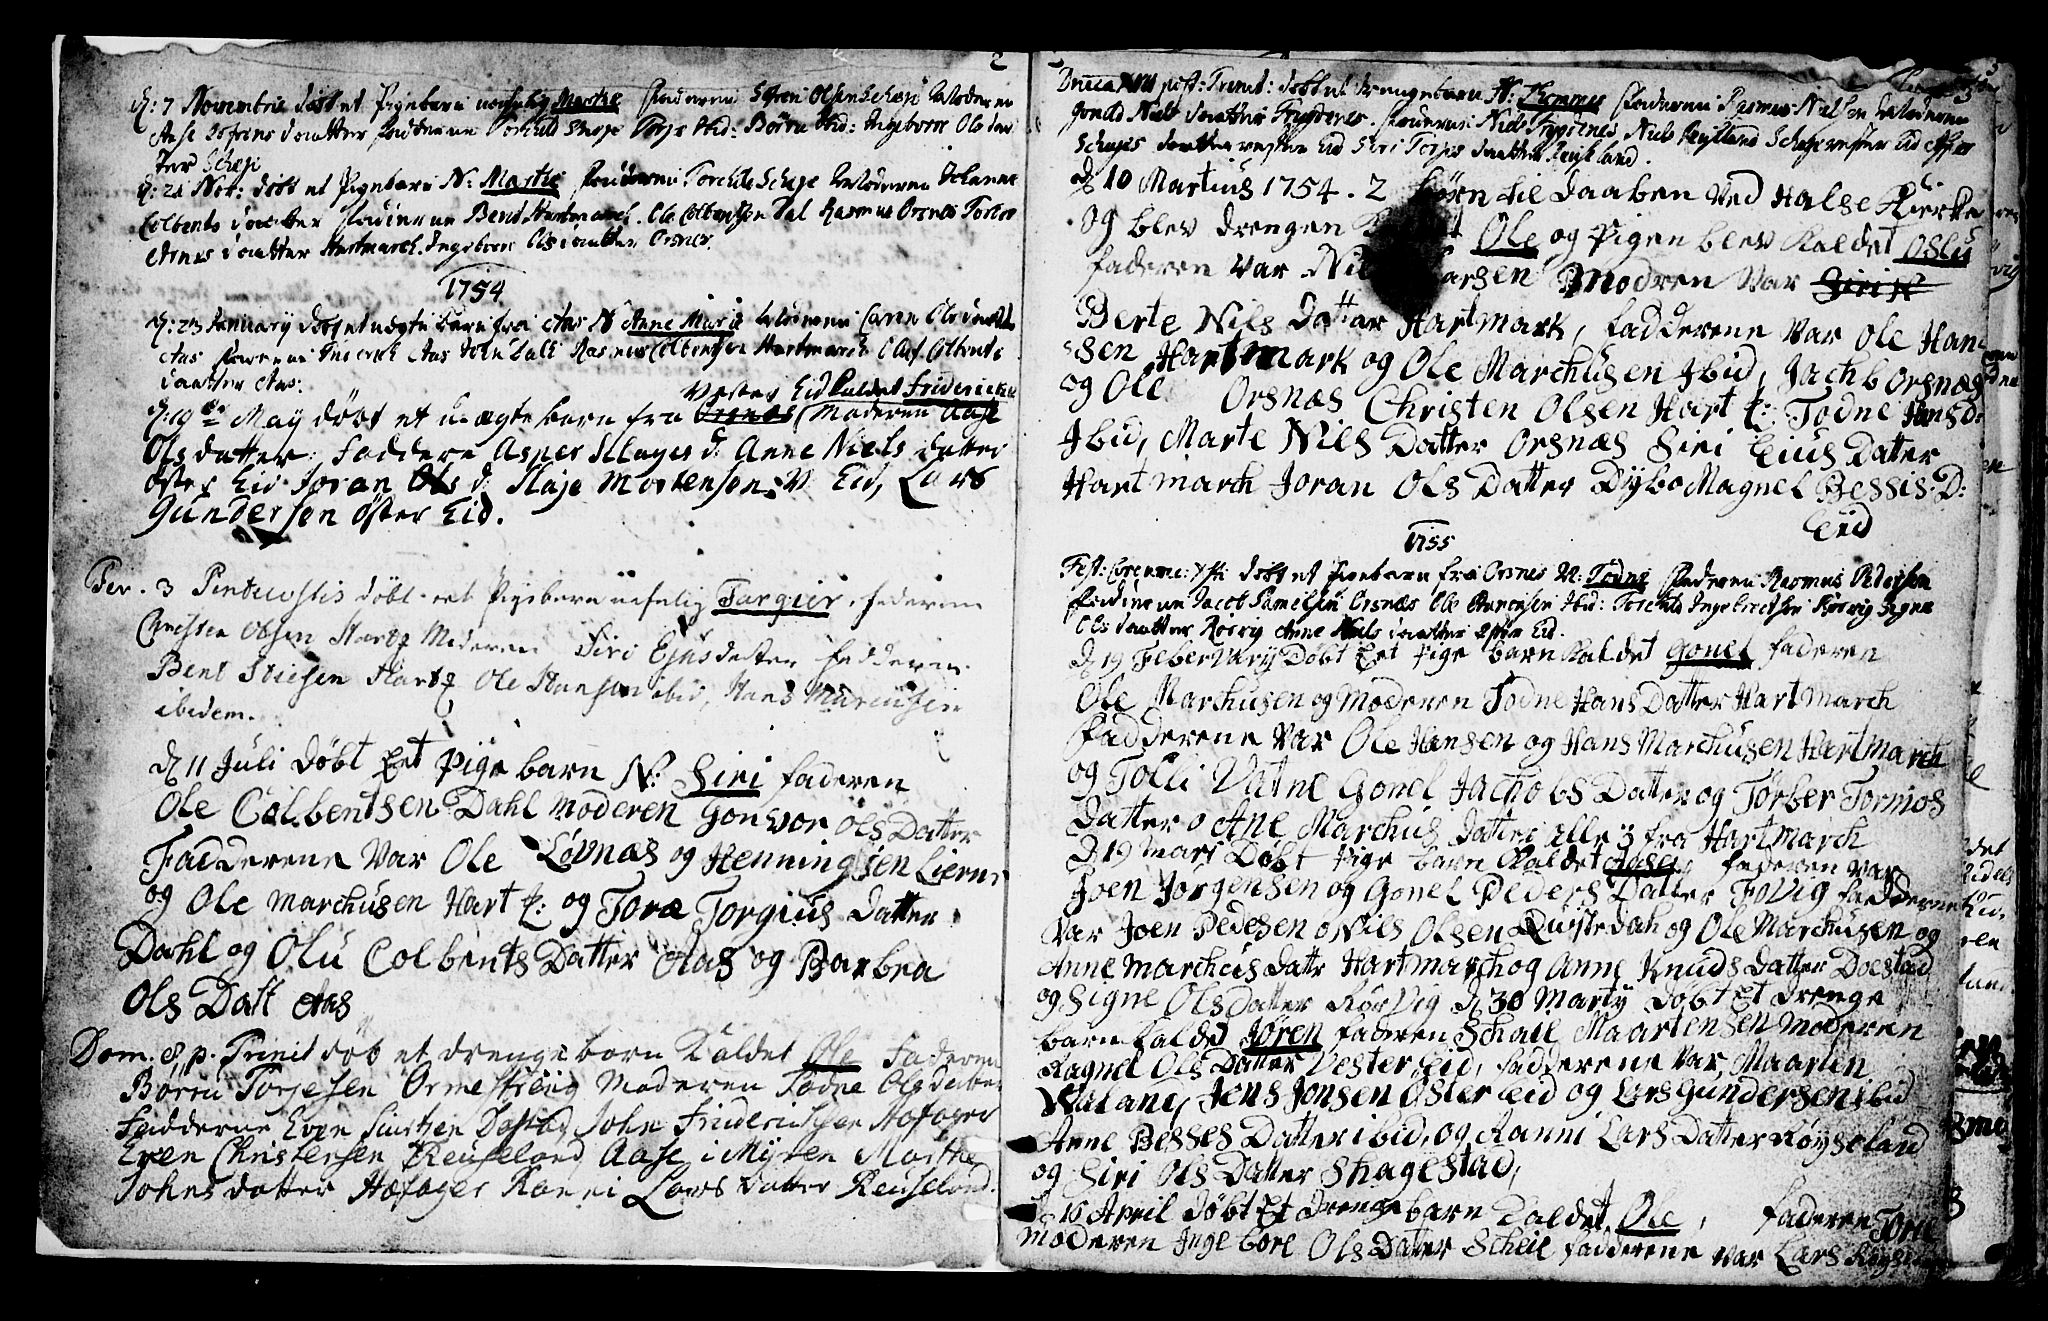 2
d: 7 Novembris døbt et Pigebarn nafnlig Marthe Faderen Søfren Olsen Schøje Moderen
Aase Søfrens daatter Fadderne Torchild Skoje Torje ibid: Børn ibid: Ingebor Ols daa
ter Schøje
d: 21 Nov: døbt et Pigebarn N: Marthe Faderen Torchild Schøje Moderen Johanne
Colbents daatter Fadderne Bent Hartmarck. Ole Colbentsen Dal Rasmus Orsnes Torbor
Aanes daatter Hartmarch. Ingebor Ols daatter Orsnes.
1754
d: 23 January døbt et uægte barn fra Aas N Anne Marie Moderen Caren Ols daatter
Aas Faderne Friderich Aas John Dall Rasmus Colbentsen Hartmarch Colbents
daatter Aas:
Vester Eid Kaldet Fridericke
d: 19de May døbt et u-ægte barn fra Orsnæs Moderen Aase
Olsdatter: Faddere Asper Slages d: Anne Niels datter
Øster Eid Joran Ols d: Slaje Mortensen V: Eid, Lars
Gundersen Øster Eid.
Fer. 3 Pentecostis døbt et Pigebarn nafnlig Targier, faderen
Christen Olsen Hart Moderen Siri Ejusdatter fadderne
Bent Stiesen Hart Ole Hansen ibid, Hans Marcussen
ibidem.
d 11 Juli Døbt Eet Pige barn N: Siri faderen
Ole Colbentsen Dahl Moderen Gonvor Ols Datter
Fadderene Var Ole Løvnæs og Henningsen Lierne
og Ole Marchusen Hart: og Toræ Torgius Datter
Dahl og Olu Colbents Datter Aas og Barbra
Ols Datt Aas
Dom. 8 p. Trinit døb et drenge barn Kaldet Ole Faderen
Børn Torjesen Ormestrøng Moderen Todne Olsdatter
Fadderne Even John Friderichsen Høfager
Even Christensen Reuseland Aase i Myren Marthe
Johns datter Høfager Ranni Lars datter Reuseland.
Dnica XVII post: Trinit: døbt et drengebarn N: Faderen Rasmus Nielsen Moderen
Gonild Niels daatter Frydenes. Fadderne: Niels Frydenes, Niels Røysland Schøje vester Eid
Schøjes daatter vester Eid Siri Torjes daatter Reusland.
d 10 Martius 1754. 2 børn til Daaben Ved Halse Kierke
og blev drengen Ole og Pigen blev Kaldet Oslu
faderen Var Nils Larsen Modren Var Siri N
Berte Nils Datter Hartmark, fadderene Var Ole Han
sen Hartmark og Ole Marchusen Ibid, Jachb Orsnæs
og Ole Orsnæs Christen Olsen Hart: Todne Hans D:
Ibid, Marte Nils Datter Orsnæs Siri Eius Dater
Hartmarch Joran Ols Datter Dybo Magnel Bessis D:
Eid
1755
Fest: døbt et Pigebarn fra Orsnes N: Todne Faderen Rasmus Pedersen
Fadderne Jacob Samelsen Orsnæs Ole Ibid: Torchild Ingebrectsen Rørvig Signe
Ols daatter Rørvig Anne Niels daatter Øster Eid.
d 19 Febervary Døbt Eet Pige barn Kaldet Gonel faderen
Ole Marchusen og Moderen Todne Hans Datter Hartmarch
Fadderene Var Ole Hansen og Hans Marchusen Hartmarch
og Tolli Vatne Gonel Jachobs Datter og Torber Tormos
Datter o Ane Marchus Datter alle 3 fra Hartmarch
d 19 Mars Døbt Pige barn Kaldet Aase faderen Var
Joen Jørgensen og Gonel Peders Datter Fovig fadderne
Var Joen Pedesen o Nils Olsen Quistedah og Ole Marchusen og
Anne Marchus Datr Hartmarch og Anne Knuds Datter Doestad
og Signe Ols Datter Rørvig d 30 Marty Døbt Et Drenge
barn Kaldet Jøren faderen Schaie Maartensen Moderen
Ragnel Ols Datter Vester Eid, fadderene Var Maarten
Valand, Jens Jonsen Øster Eid og Lars Gundersen ibid
Anne Besses Datter ibid, og Ranni Lars Datter Røyseland
og Siri Ols Datter Skagestad,
d 16 April døbt Et Drenge barn Kaldet Ole, faderen Torie
Moderen Ingebore Ols Dater Scheie fadderene var Lars